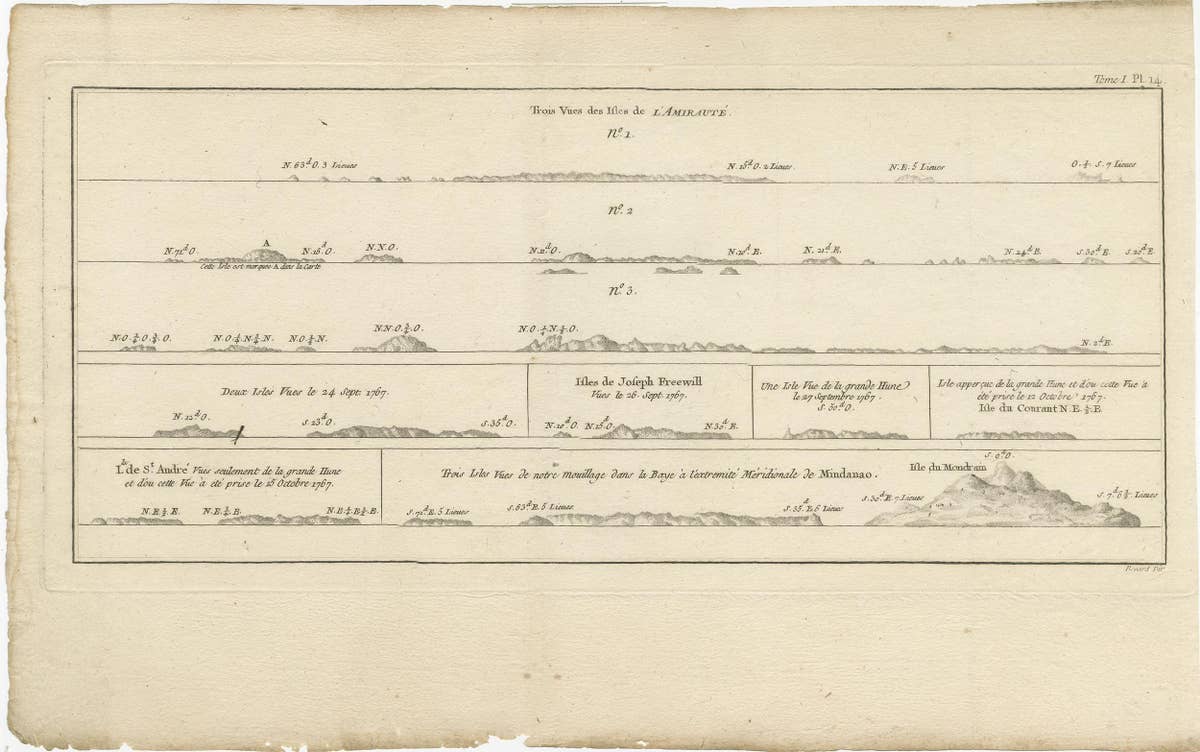 Tome I. Pl. 14.
Trois Vues des Isles de L'AMIRAUTÉ.
N.º 1.
N. 63.d O. 3 Lieues N. 15.d O. 2 Lieues. N. E. 5 Lieues O. ¼ S. 7 Lieues
N.º 2
N. 71.d O. A N. 18.d O. N. N. O. N. 11.d O. N. 10.d E. N. 21.d E. N. 24.d E. S. 30.d E. S. 20.d E.
Cette Isle est marquée A dans la Carte
N.º 3.
N. O. ¾ O. N. O. ¼ N. ¼ N. N. O. ½ N. N. N. O. ¾ O. N. O. ¼ N. ½ O. N. 2.d E.
Deux Isles Vues le 24 Sept. 1767.
N. 12.d O. S. 23.d O. S. 35.d O.
Isles de Joseph Freewill
Vues le 26. Sept. 1767.
N. 10.d O. N. 15.d O. N. 30.d E.
Une Isle Vue de la grande Hune
le 27 Septembre 1767.
S. 50.d O.
Isle apperçue de la grande Hune et d'ou cette Vue a
été prise le 12 Octobre 1767.
Isle du Courant N. E. ½ E.
I.le de S.t André Vues seulement de la grande Hune
et d'ou cette Vue a été prise le 15 Octobre 1767.
N. E. ½ E. N. E. ¾ E. N. E. ¼ E. ½ E.
Trois Isles Vues de notre mouillage dans la Baye à l'extremité Méridionale de Mindanao.
S. 71.d E. 5 Lieues S. 63.d E. 5 Lieues S. 35.d E. 6 Lieues
Isle du Mondrain
S. 30.d E. 7 Lieues S. 0.d O. S. 7.d 6 ½ Lieues
Benard Dir.